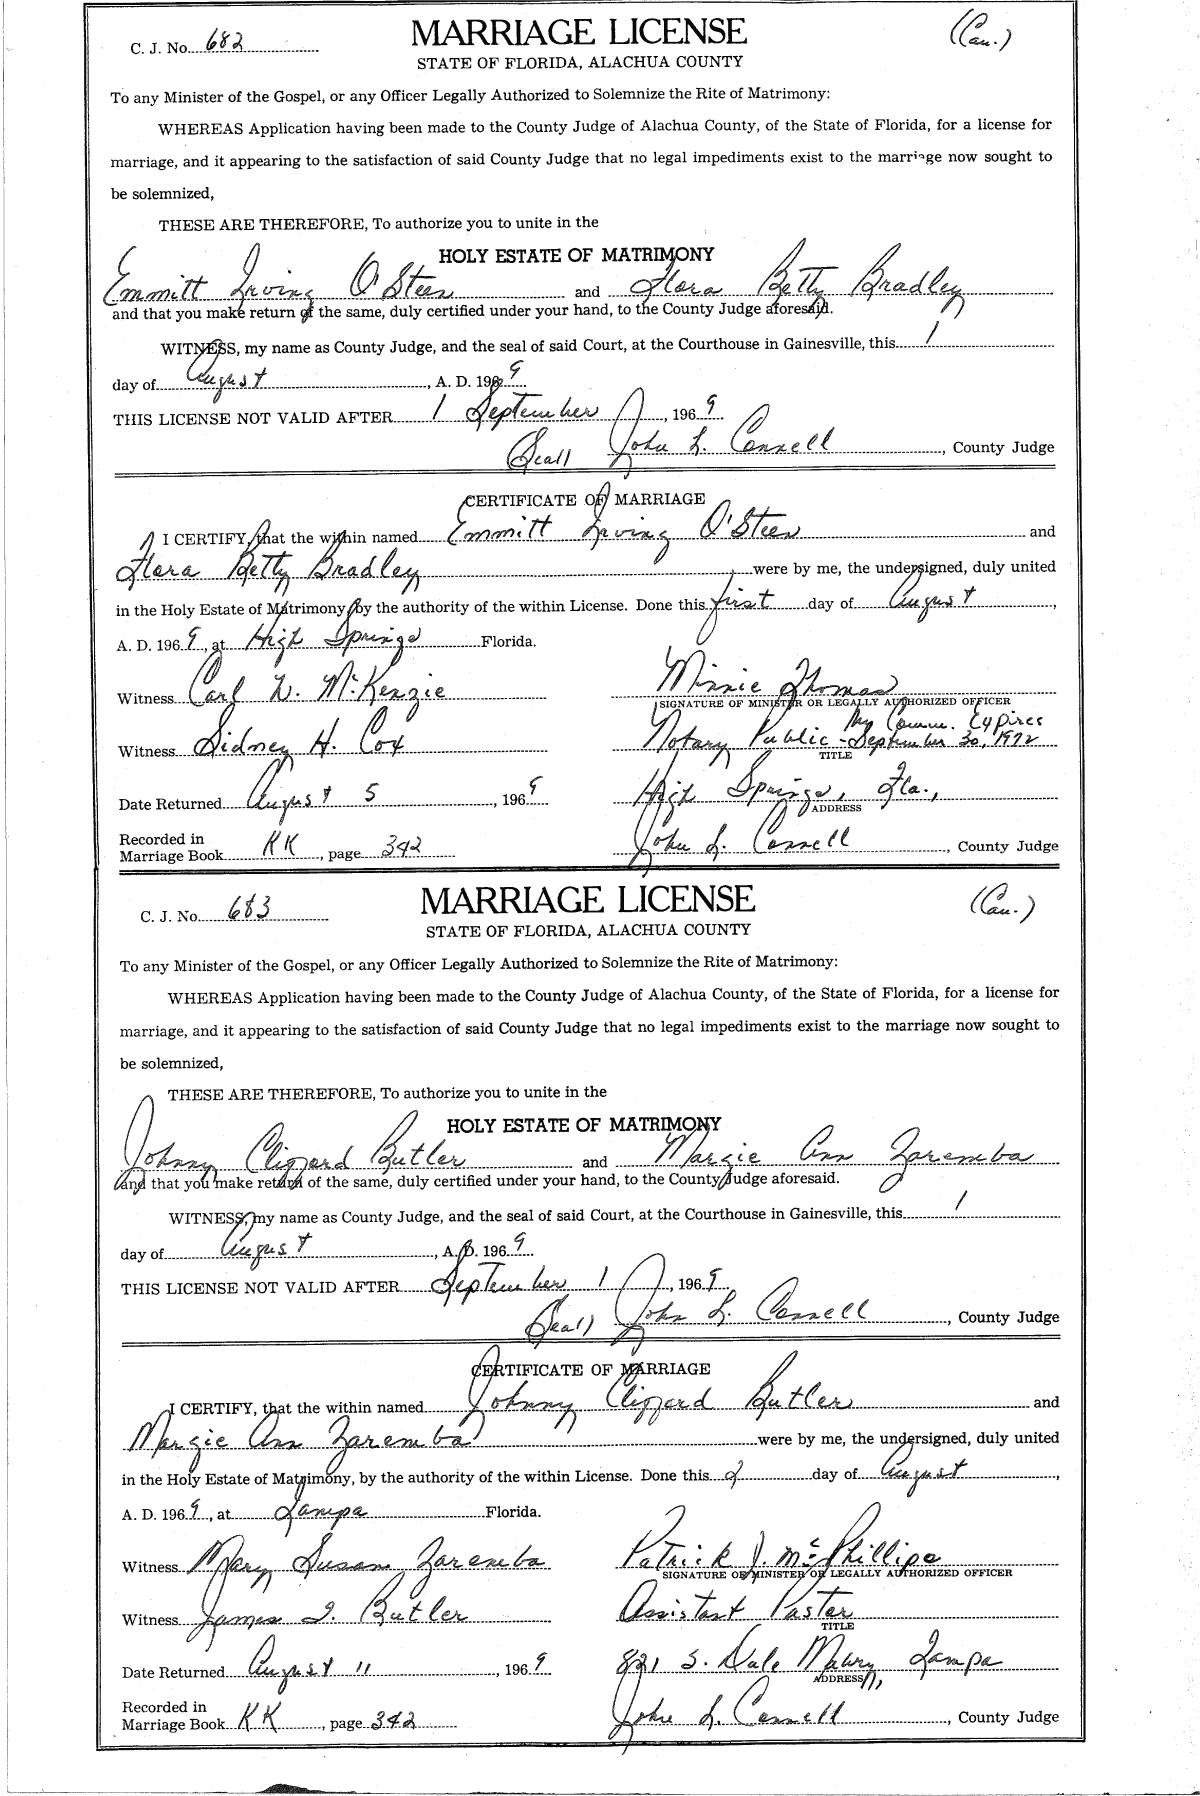 C. J. No. 682 MARRIAGE LICENSE (Cau.)
STATE OF FLORIDA, ALACHUA COUNTY
To any Minister of the Gospel, or any Officer Legally Authorized to Solemnize the Rite of Matrimony:
WHEREAS Application having been made to the County Judge of Alachua County, of the State of Florida, for a license for
marriage, and it appearing to the satisfaction of said County Judge that no legal impediments exist to the marriage now sought to
be solemnized,
THESE ARE THEREFORE, To authorize you to unite in the
HOLY ESTATE OF MATRIMONY
Emmitt Irving O'Steen and Flora Betty Bradley
and that you make return of the same, duly certified under your hand, to the County Judge aforesaid.
WITNESS, my name as County Judge, and the seal of said Court, at the Courthouse in Gainesville, this 1
day of August, A. D. 1969
THIS LICENSE NOT VALID AFTER 1 September, 1969
(Seal) John L. Connell, County Judge
CERTIFICATE OF MARRIAGE
I CERTIFY, that the within named Emmitt Irving O'Steen and
Flora Betty Bradley were by me, the undersigned, duly united
in the Holy Estate of Matrimony, by the authority of the within License. Done this first day of August,
A. D. 1969, at High Springs Florida.
Witness Carl W. McKenzie Minnie Thomas
SIGNATURE OF MINISTER OR LEGALLY AUTHORIZED OFFICER
Witness Sidney H. Cox Notary Public - My Comm. Expires September 30, 1972
TITLE
Date Returned August 5, 1969 High Springs, Fla.,
ADDRESS
Recorded in
Marriage Book KK, page 342 John L. Connell, County Judge
C. J. No. 683 MARRIAGE LICENSE (Cau.)
STATE OF FLORIDA, ALACHUA COUNTY
To any Minister of the Gospel, or any Officer Legally Authorized to Solemnize the Rite of Matrimony:
WHEREAS Application having been made to the County Judge of Alachua County, of the State of Florida, for a license for
marriage, and it appearing to the satisfaction of said County Judge that no legal impediments exist to the marriage now sought to
be solemnized,
THESE ARE THEREFORE, To authorize you to unite in the
HOLY ESTATE OF MATRIMONY
Johnny Clifford Butler and Margie Ann Zaremba
and that you make return of the same, duly certified under your hand, to the County Judge aforesaid.
WITNESS, my name as County Judge, and the seal of said Court, at the Courthouse in Gainesville, this 1
day of August, A. D. 1969
THIS LICENSE NOT VALID AFTER September 1, 1969
(Seal) John L. Connell, County Judge
CERTIFICATE OF MARRIAGE
I CERTIFY, that the within named Johnny Clifford Butler and
Margie Ann Zaremba were by me, the undersigned, duly united
in the Holy Estate of Matrimony, by the authority of the within License. Done this 2 day of August,
A. D. 1969, at Tampa Florida.
Witness Mary Susan Zaremba Patrick J. McPhillips
SIGNATURE OF MINISTER OR LEGALLY AUTHORIZED OFFICER
Witness James I. Butler Assistant Pastor
TITLE
Date Returned August 11, 1969 821 S. Dale Mabry, Tampa
ADDRESS
Recorded in
Marriage Book KK, page 342 John L. Connell, County Judge